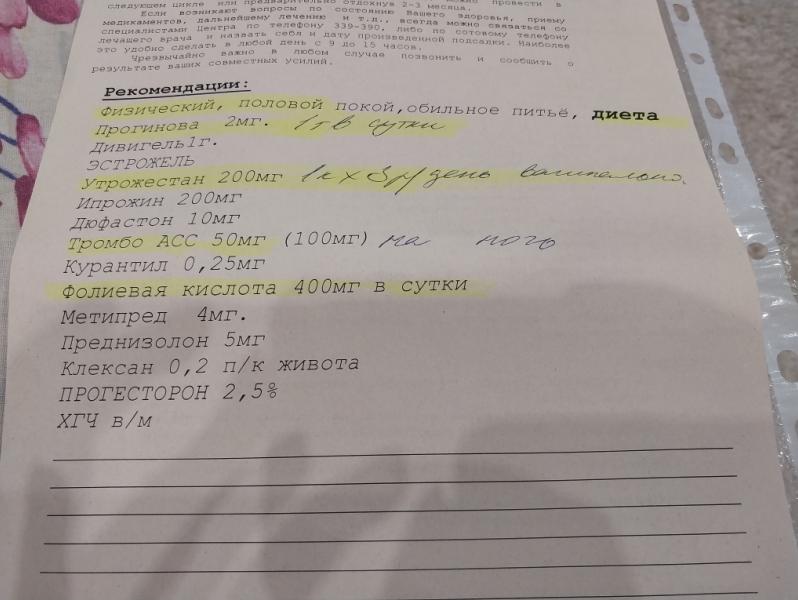 следующем цикле или предварительно отдохнув 2-3 месяца.
Если возникают вопросы по состоянию Вашего здоровья, приему
медикаментов, дальнейшему лечению и т.д., всегда можно связаться со
специалистами Центра по телефону 339-390, либо по сотовому телефону
лечащего врача и назвать себя и дату произведенной подсадки. Наиболее
это удобно сделать в любой день с 9 до 15 часов.
Чрезвычайно важно в любом случае позвонить и сообщить о
результате ваших совместных усилий.
Рекомендации:
Физический, половой покой,обильное питьё, диета
Прогинова 2мг. 1т в сутки
Дивигель1г.
ЭСТРОЖЕЛЬ
Утрожестан 200мг 1к х 3р/день вагинально.
Ипрожин 200мг
Дюфастон 10мг
Тромбо АСС 50мг (100мг) на ночь
Курантил 0,25мг
Фолиевая кислота 400мг в сутки
Метипред 4мг.
Преднизолон 5мг
Клексан 0,2 п/к живота
ПРОГЕСТОРОН 2,5%
ХГЧ в/м